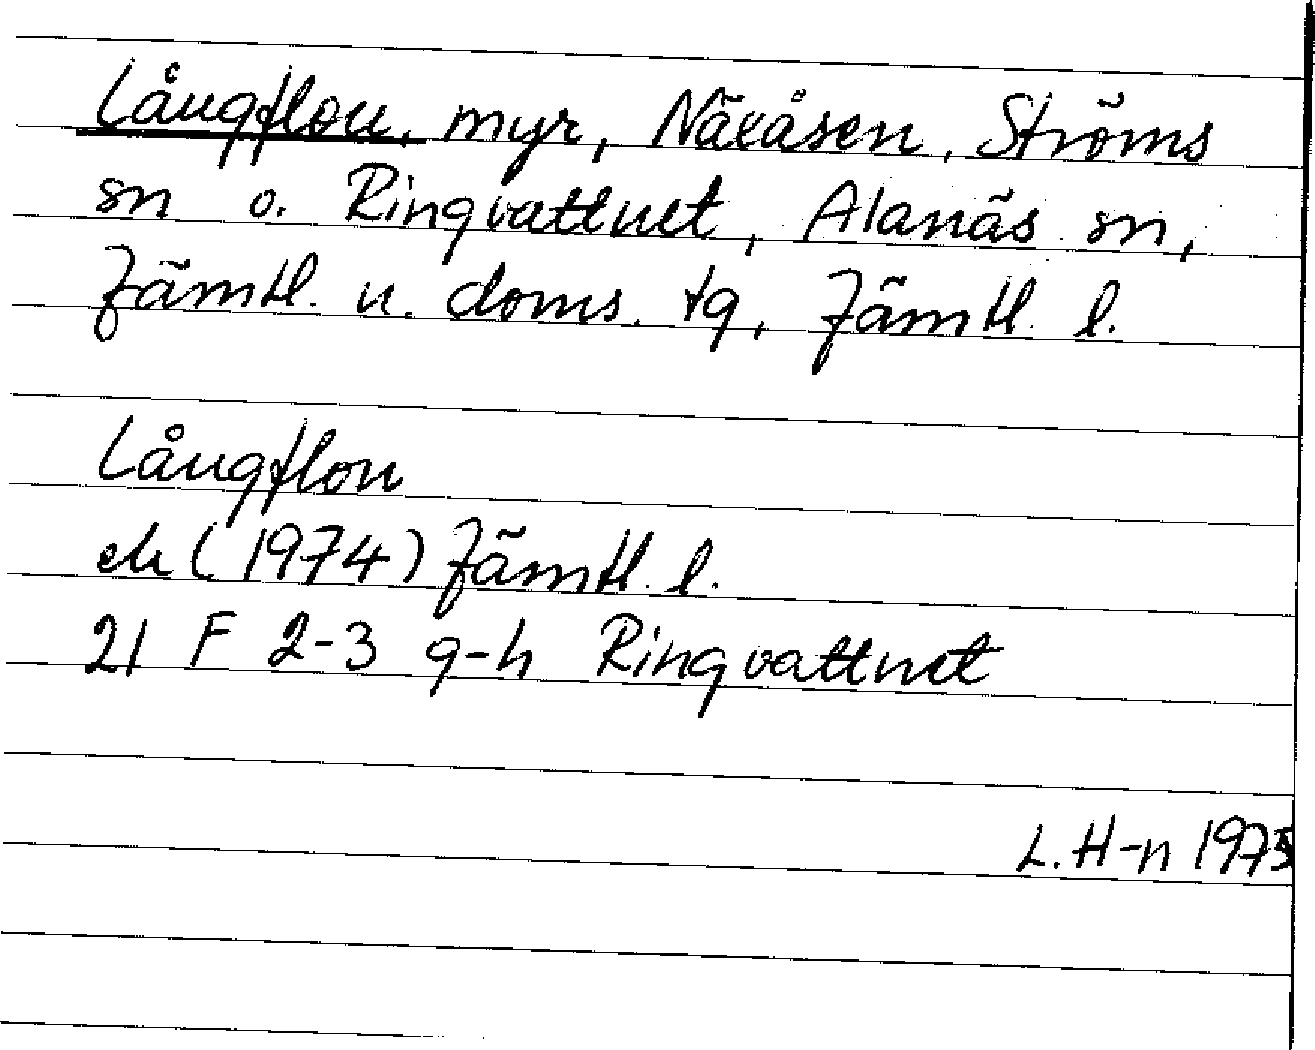 Långflon, myr, Näxåsen, Ströms
sn o. Ringvattnet, Alanäs sn,
Jämtl. n. doms. tg, Jämtl. l.
Långflon
ek (1974) Jämtl. l.
21 F 2-3 g-h Ringvattnet
L. H-n 1975